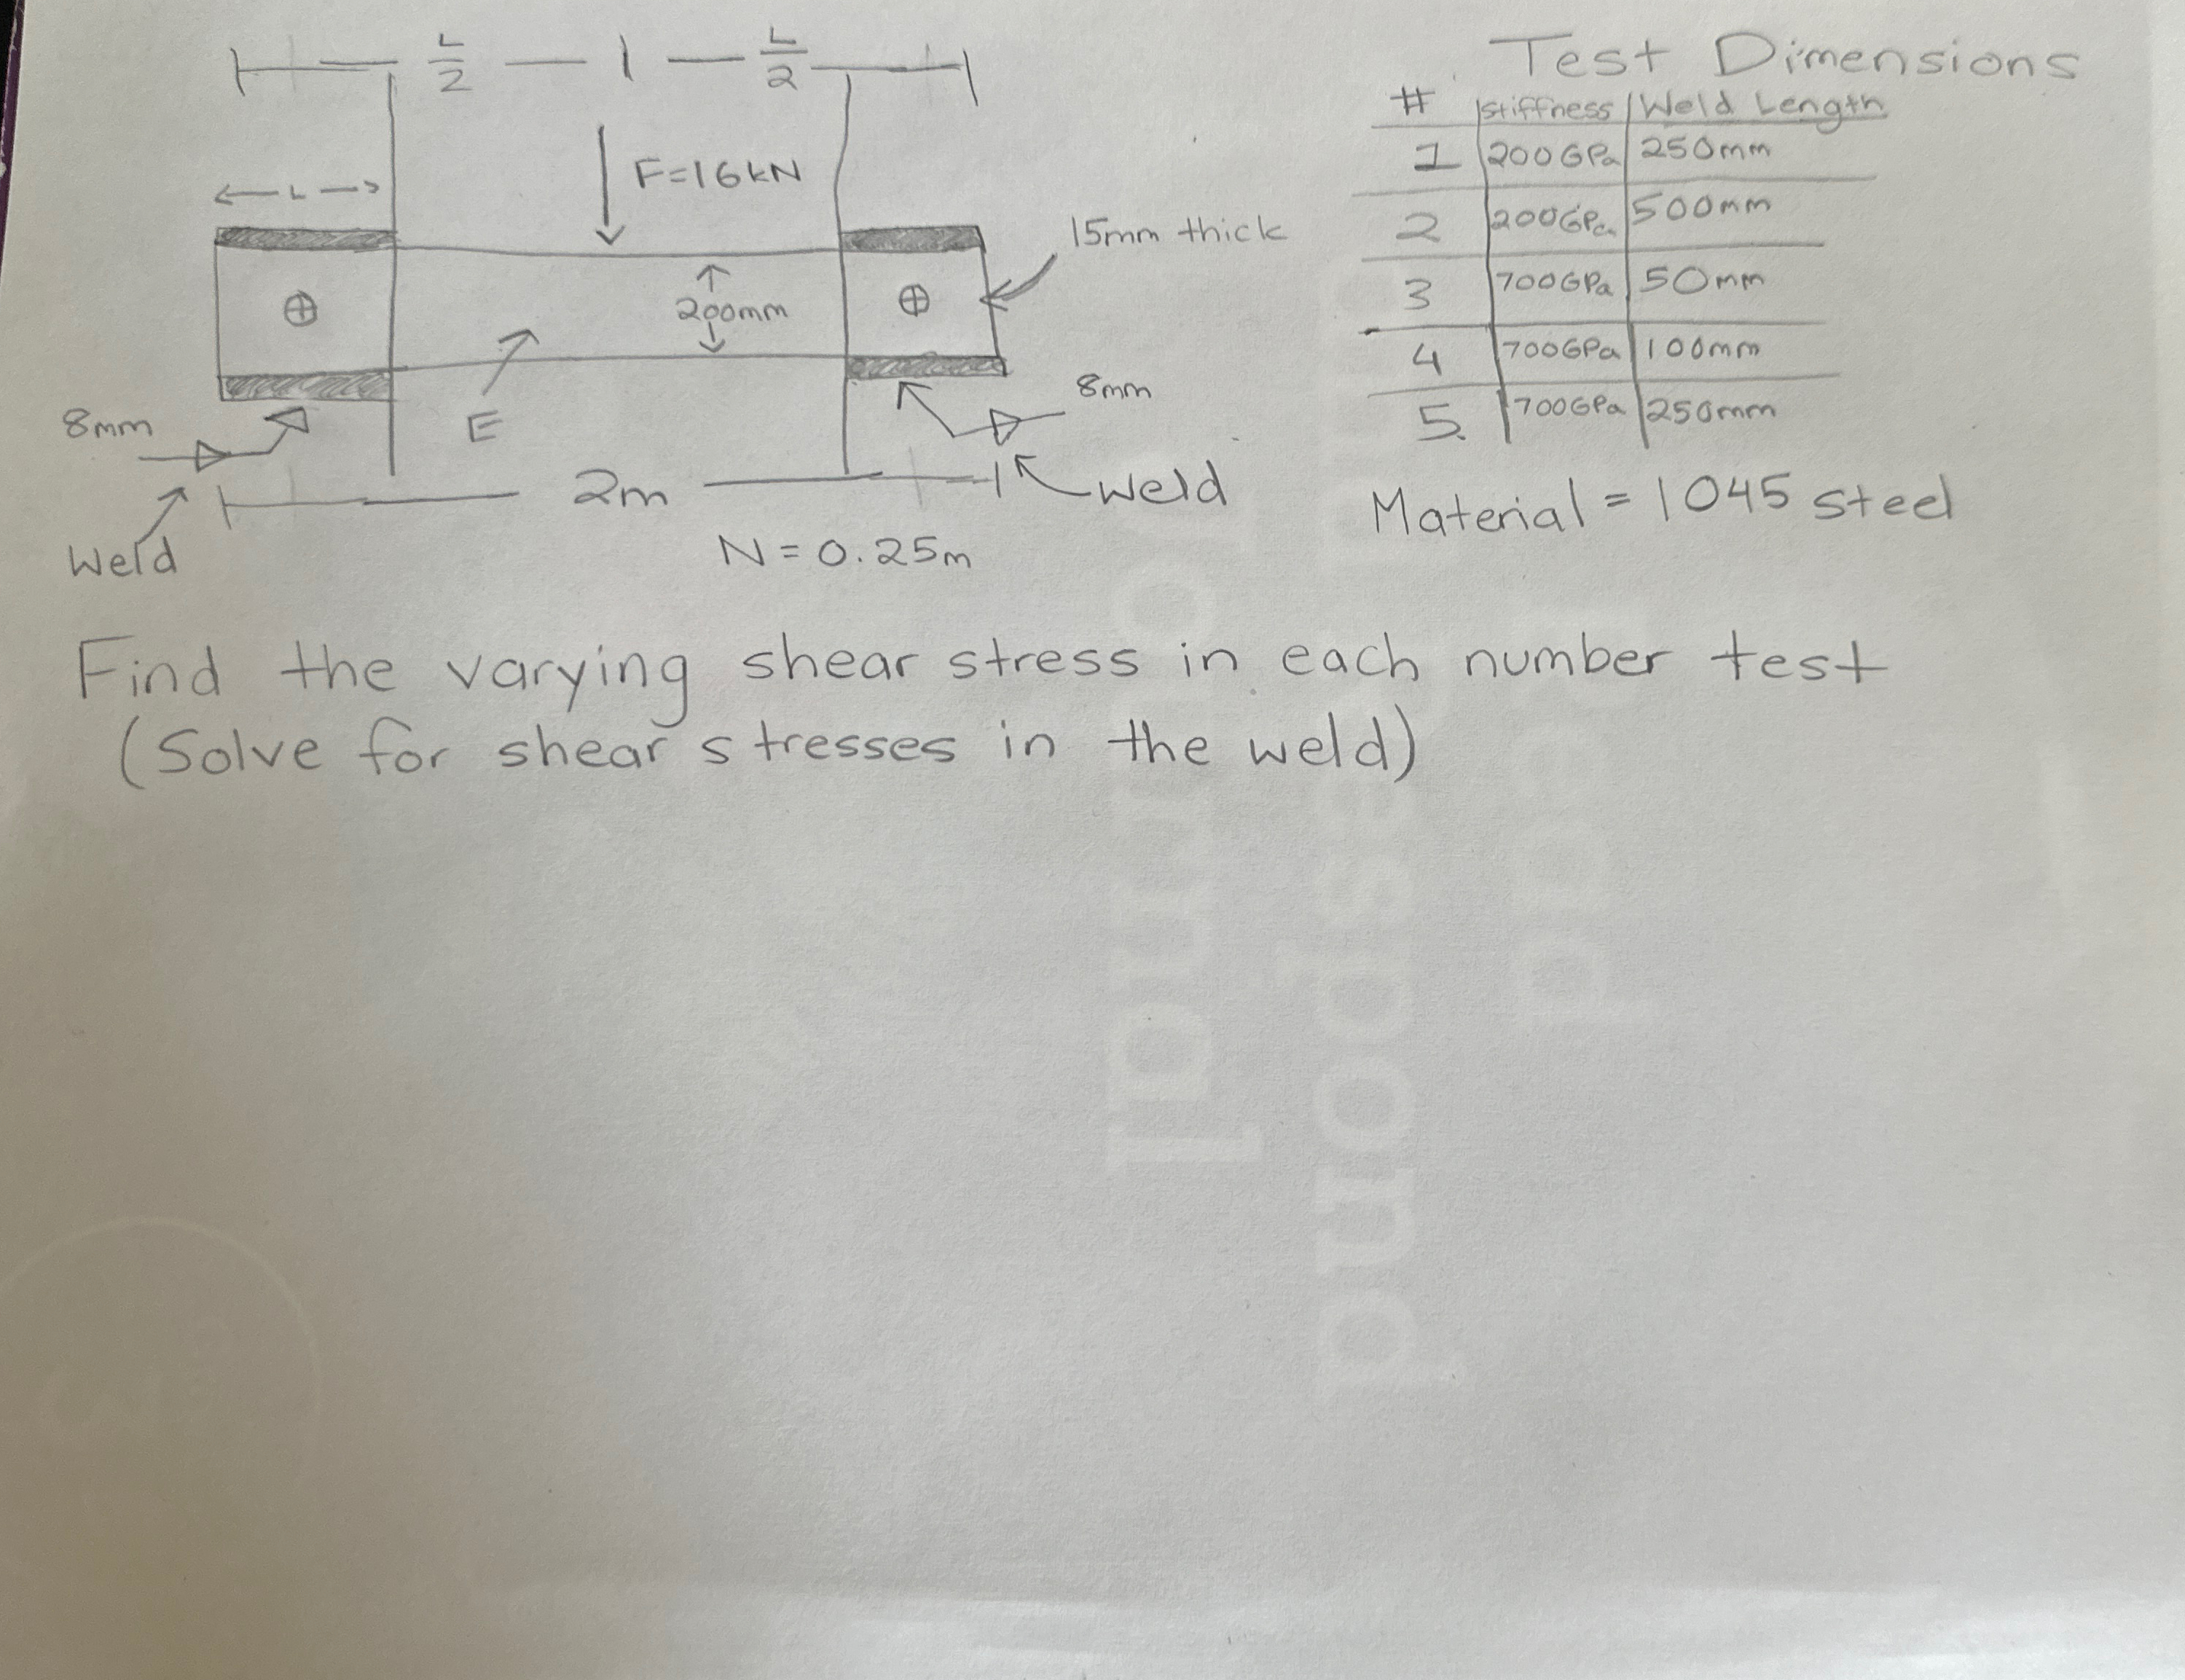 L/2 L/2
F=16kN
L
15mm thick
200mm
8mm
8mm
E
2m
Weld
Weld
N = 0.25m
Test Dimensions
# stiffness Weld Length
1 200GPa 250mm
2 200GPa 500mm
3 700GPa 50mm
4 700GPa 100mm
5. 700GPa 250mm
Material = 1045 steel
Find the varying shear stress in each number test
(Solve for shear stresses in the weld)